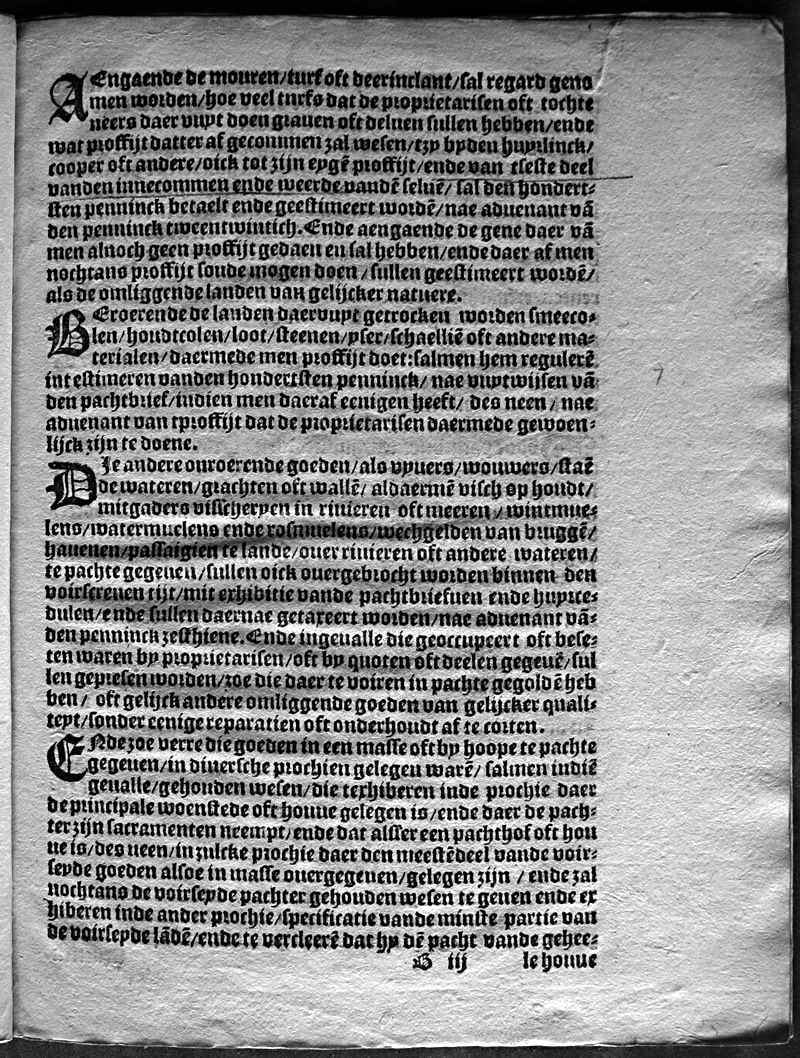 AEngaende de mouren/turf oft deerinclant/sal regard geno
men worden/hoe veel turfs dat de proprietarisen oft tochte
neers daer vuyt doen grauen oft deluen sullen hebben/ende
wat proffijt datter af gecommen zal wesen/tzy byden huyrlinck/
cooper oft andere/oick tot zijn eygẽ proffijt/ende van tseste deel
vanden innecommen ende weerde vandẽ seluẽ/ sal den hondert⸗
sten penninck betaelt ende geestimeert wordẽ/nae aduenant vã
den penninck tweentwintich. Ende aengaende de gene daer vã
men alnoch geen proffijt gedaen en sal hebben/ende daer af men
nochtans proffijt soude mogen doen/sullen geestimeert wordẽ/
als de omliggende landen van gelijcker natuere.
BEroerende de landen daervuyt getrocken worden smeeco⸗
len/houdtcolen/loot/steenen/yser/schaelliẽ oft andere ma⸗
terialen/daermede men proffijt doet:salmen hem regulerẽ
int estimeren vanden hondertsten penninck/ nae vuytwijsen vã
den pachtbrief/indien men daeraf eenigen heeft/ des neen/ nae
aduenant van tproffijt dat de proprietarisen daermede gewoen⸗
lijck zijn te doene.
DIe andere onroerende goeden/als vyuers/wouwers/staẽ
de wateren/grachten oft wallẽ/ aldaermẽ visch op houdt/
mitgaders visscheryen in rivieren oft meeren/ wintmue⸗
lens/watermuelens ende rosmuelens/wechgelden van bruggẽ/
hauenen/passaigien te lande/ouer rivieren oft andere wateren/
te pachte gegeuen/sullen oick ouergebrocht worden binnen den
voirscreuen tijt/mit exhibitie vande pachtbriefuen ende huyrce⸗
dulen/ende sullen daernae getaxeert worden/nae aduenant vã⸗
den penninck zesthiene. Ende ingeualle die geoccupeert oft bese⸗
ten waren by proprietarisen/oft by quoten oft deelen gegeuẽ/sul
len gepresen worden/zoe die daer te voiren in pachte gegoldẽ heb
ben/ oft gelijck andere omliggende goeden van gelijcker quali⸗
teyt/sonder eenige reparatien oft onderhoudt af te corten.
ENde zoe verre die goeden in een masse oft by hoope te pachte
gegeuen/in diuersche prochien gelegen warẽ/ salmen indiẽ
geualle/gehouden wesen/die texhiberen inde prochie daer
de principale woenstede oft houue gelegen is/ende daer de pach⸗
ter zijn sacramenten neempt/ende dat alsser een pachthof oft hou
ue is/des neen/in zulcke prochie daer den meestẽdeel vande voir⸗
seyde goeden alsoe in masse ouergegeuen/gelegen zijn/ ende zal
nochtans de voirseyde pachter gehouden wesen te geuen ende ex
hiberen inde ander prochie/specificatie vande minste partie van
de voirseyde lãdẽ/ende te verclerẽ dat hy dẽ pacht vande gehee⸗
B iij le houue
7